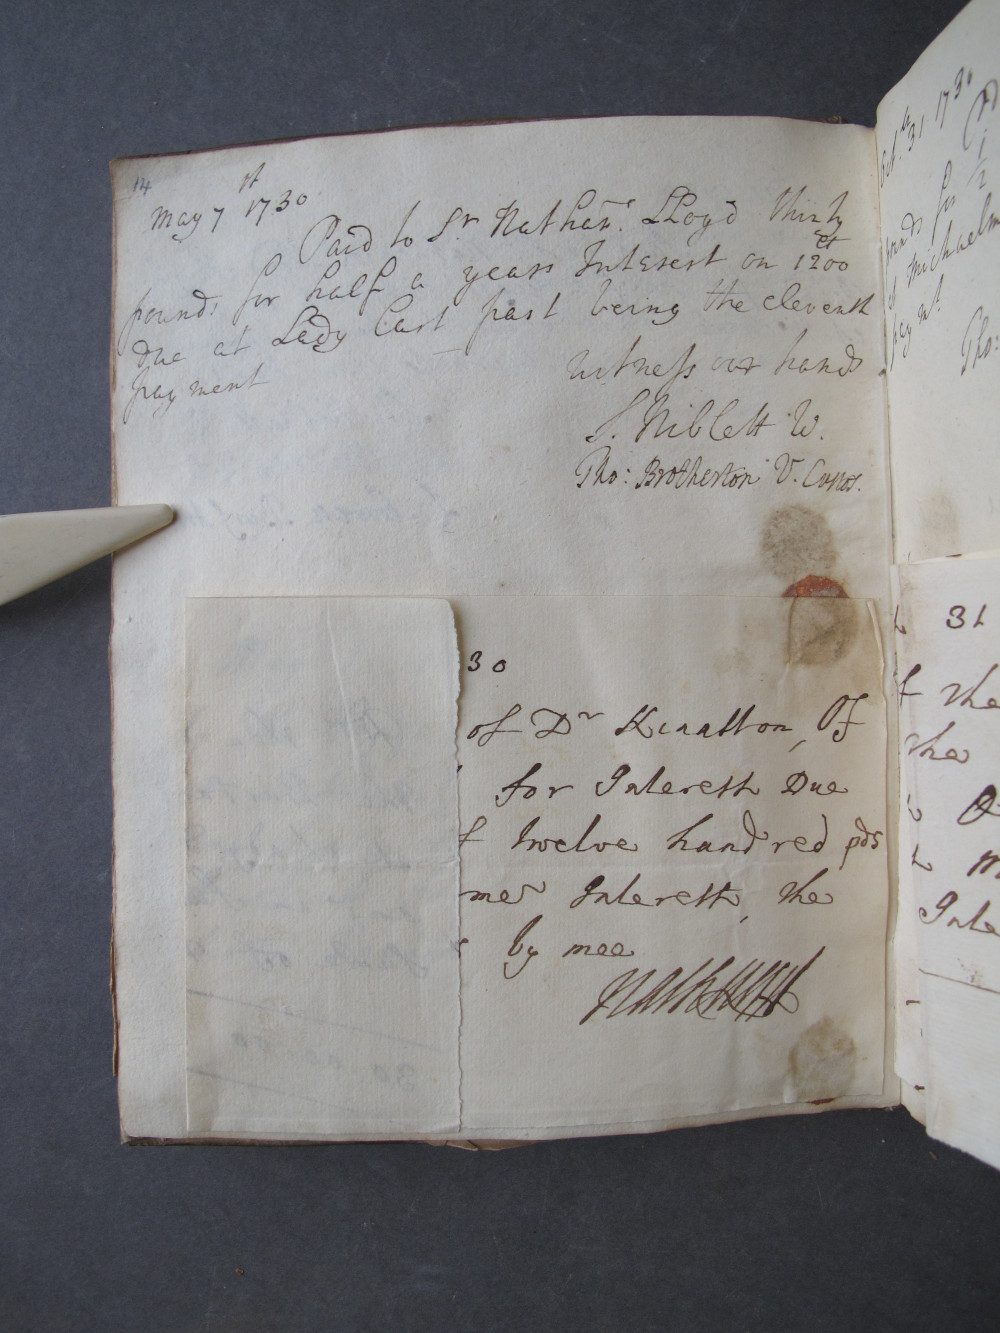 14
May 7 1730
Paid to Sr. Nathan. LLoyd thirty
pounds for half a years Interest on 1200
due at Lady Cast past being the eleventh
payment
witness our hands
S. Niblett W.
Tho: Brotherton V. Custos.
30
of Dr Kinaston, Of
for Interest Due
f twelve hundred pds
me Interest, the
by mee
Nath Lloyd
Octbr. 31 1730
pounds for
Michaelm
paymt
Tho:
31
f the
the
Inte